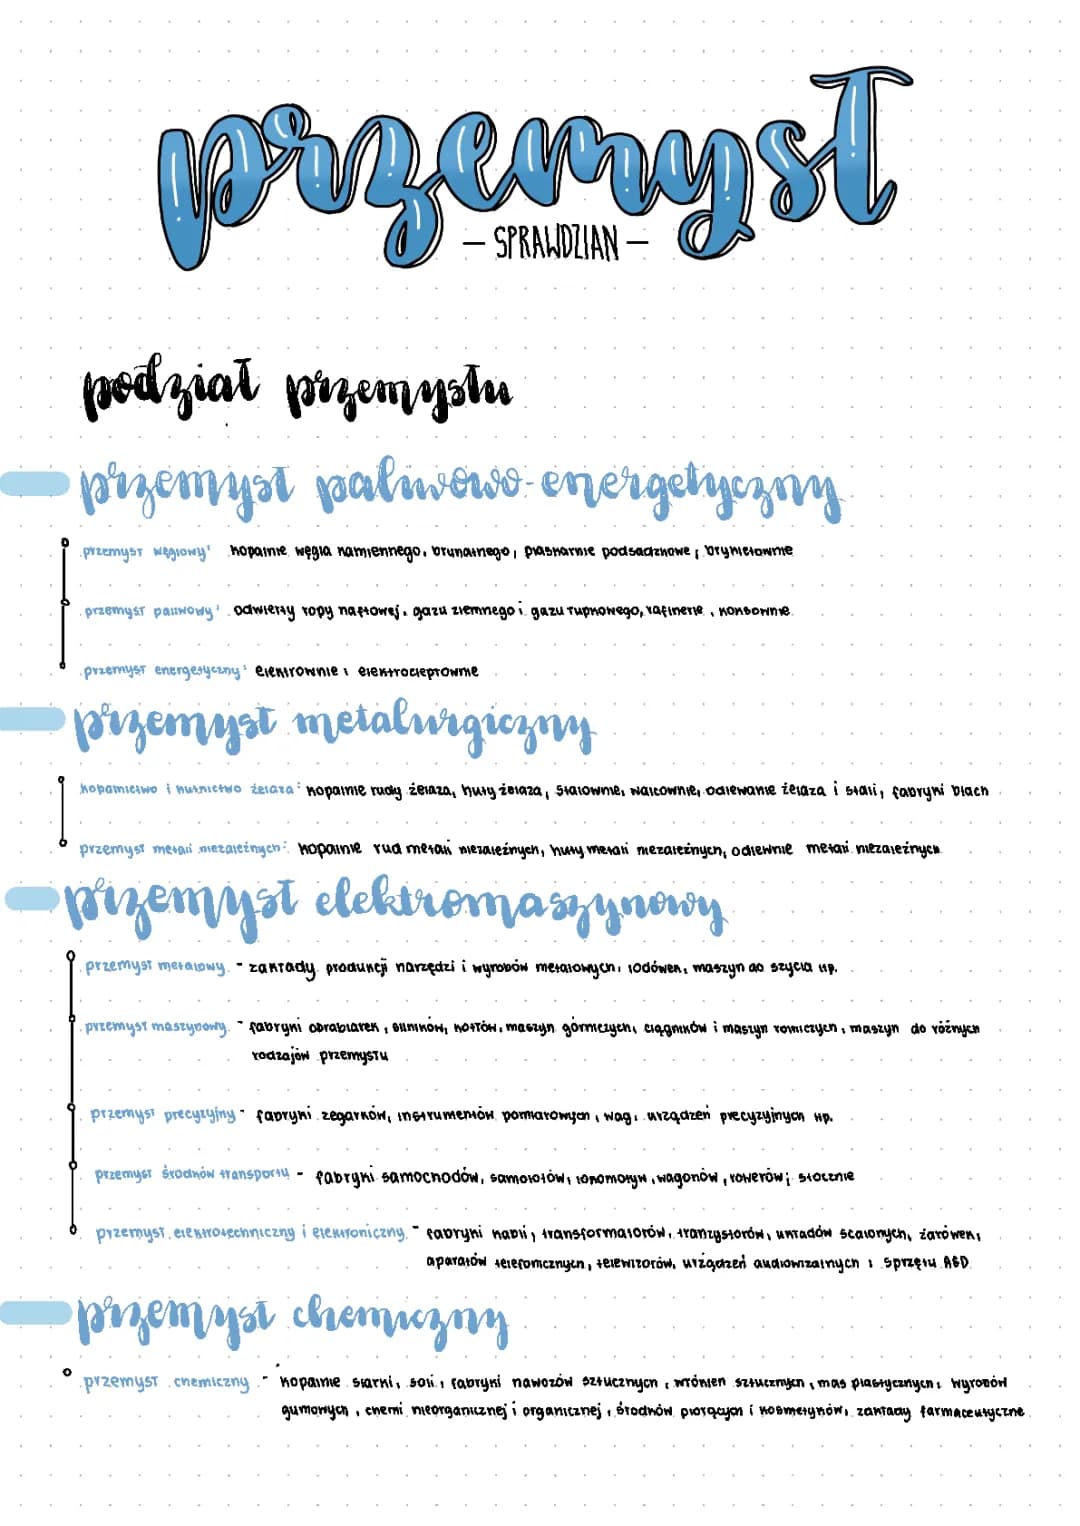 przemysł
– SPRAWDZIAN –
podział przemysłu
przemysł paliwowo-energetyczny
przemysł węglowy: kopalnie węgla kamiennego, brunatnego, piaskarnie podsadzkowe, brykietownie
przemysł paliwowy: odwierty ropy naftowej, gazu ziemnego i gazu łupkowego, rafinerie, koksownie
przemysł energetyczny: elektrownie i elektrociepłownie
przemysł metalurgiczny
kopalnictwo i hutnictwo żelaza: kopalnie rudy żelaza, huty żelaza, stalownie, walcownie, odlewanie żelaza i stali, fabryki blach
przemysł metali nieżależnych: kopalnie rud metali nieżależnych, huty metali nieżależnych, odlewnie metali nieżależnych
przemysł elektromaszynowy
przemysł metalowy - zakłady produkcji narzędzi i wyrobów metalowych, lodówek, maszyn do szycia itp.
przemysł maszynowy - fabryki obrabiarek, silników, kotłów, maszyn górniczych, ciągników i maszyn rolniczych, maszyn do różnych
rodzajów przemysłu
przemysł precyzyjny - fabryki zegarków, instrumentów pomiarowych, wag, urządzeń precyzyjnych itp.
przemysł środków transportu - fabryki samochodów, samolotów, lokomotyw, wagonów, rowerów; stocznie
przemysł elektrotechniczny i elektroniczny - fabryki kabli, transformatorów, tranzystorów, układów scalonych, żarówek,
aparatów telefonicznych, telewizorów, urządzeń audiowizalnych i sprzętu AGD
przemysł chemiczny
przemysł chemiczny - kopalnie siarki, soli, fabryki nawozów sztucznych, włókien sztucznych, mas plastycznych, wyrobów
gumowych, chemii nieorganicznej i organicznej, środków piorących i kosmetyków, zakłady farmaceutyczne